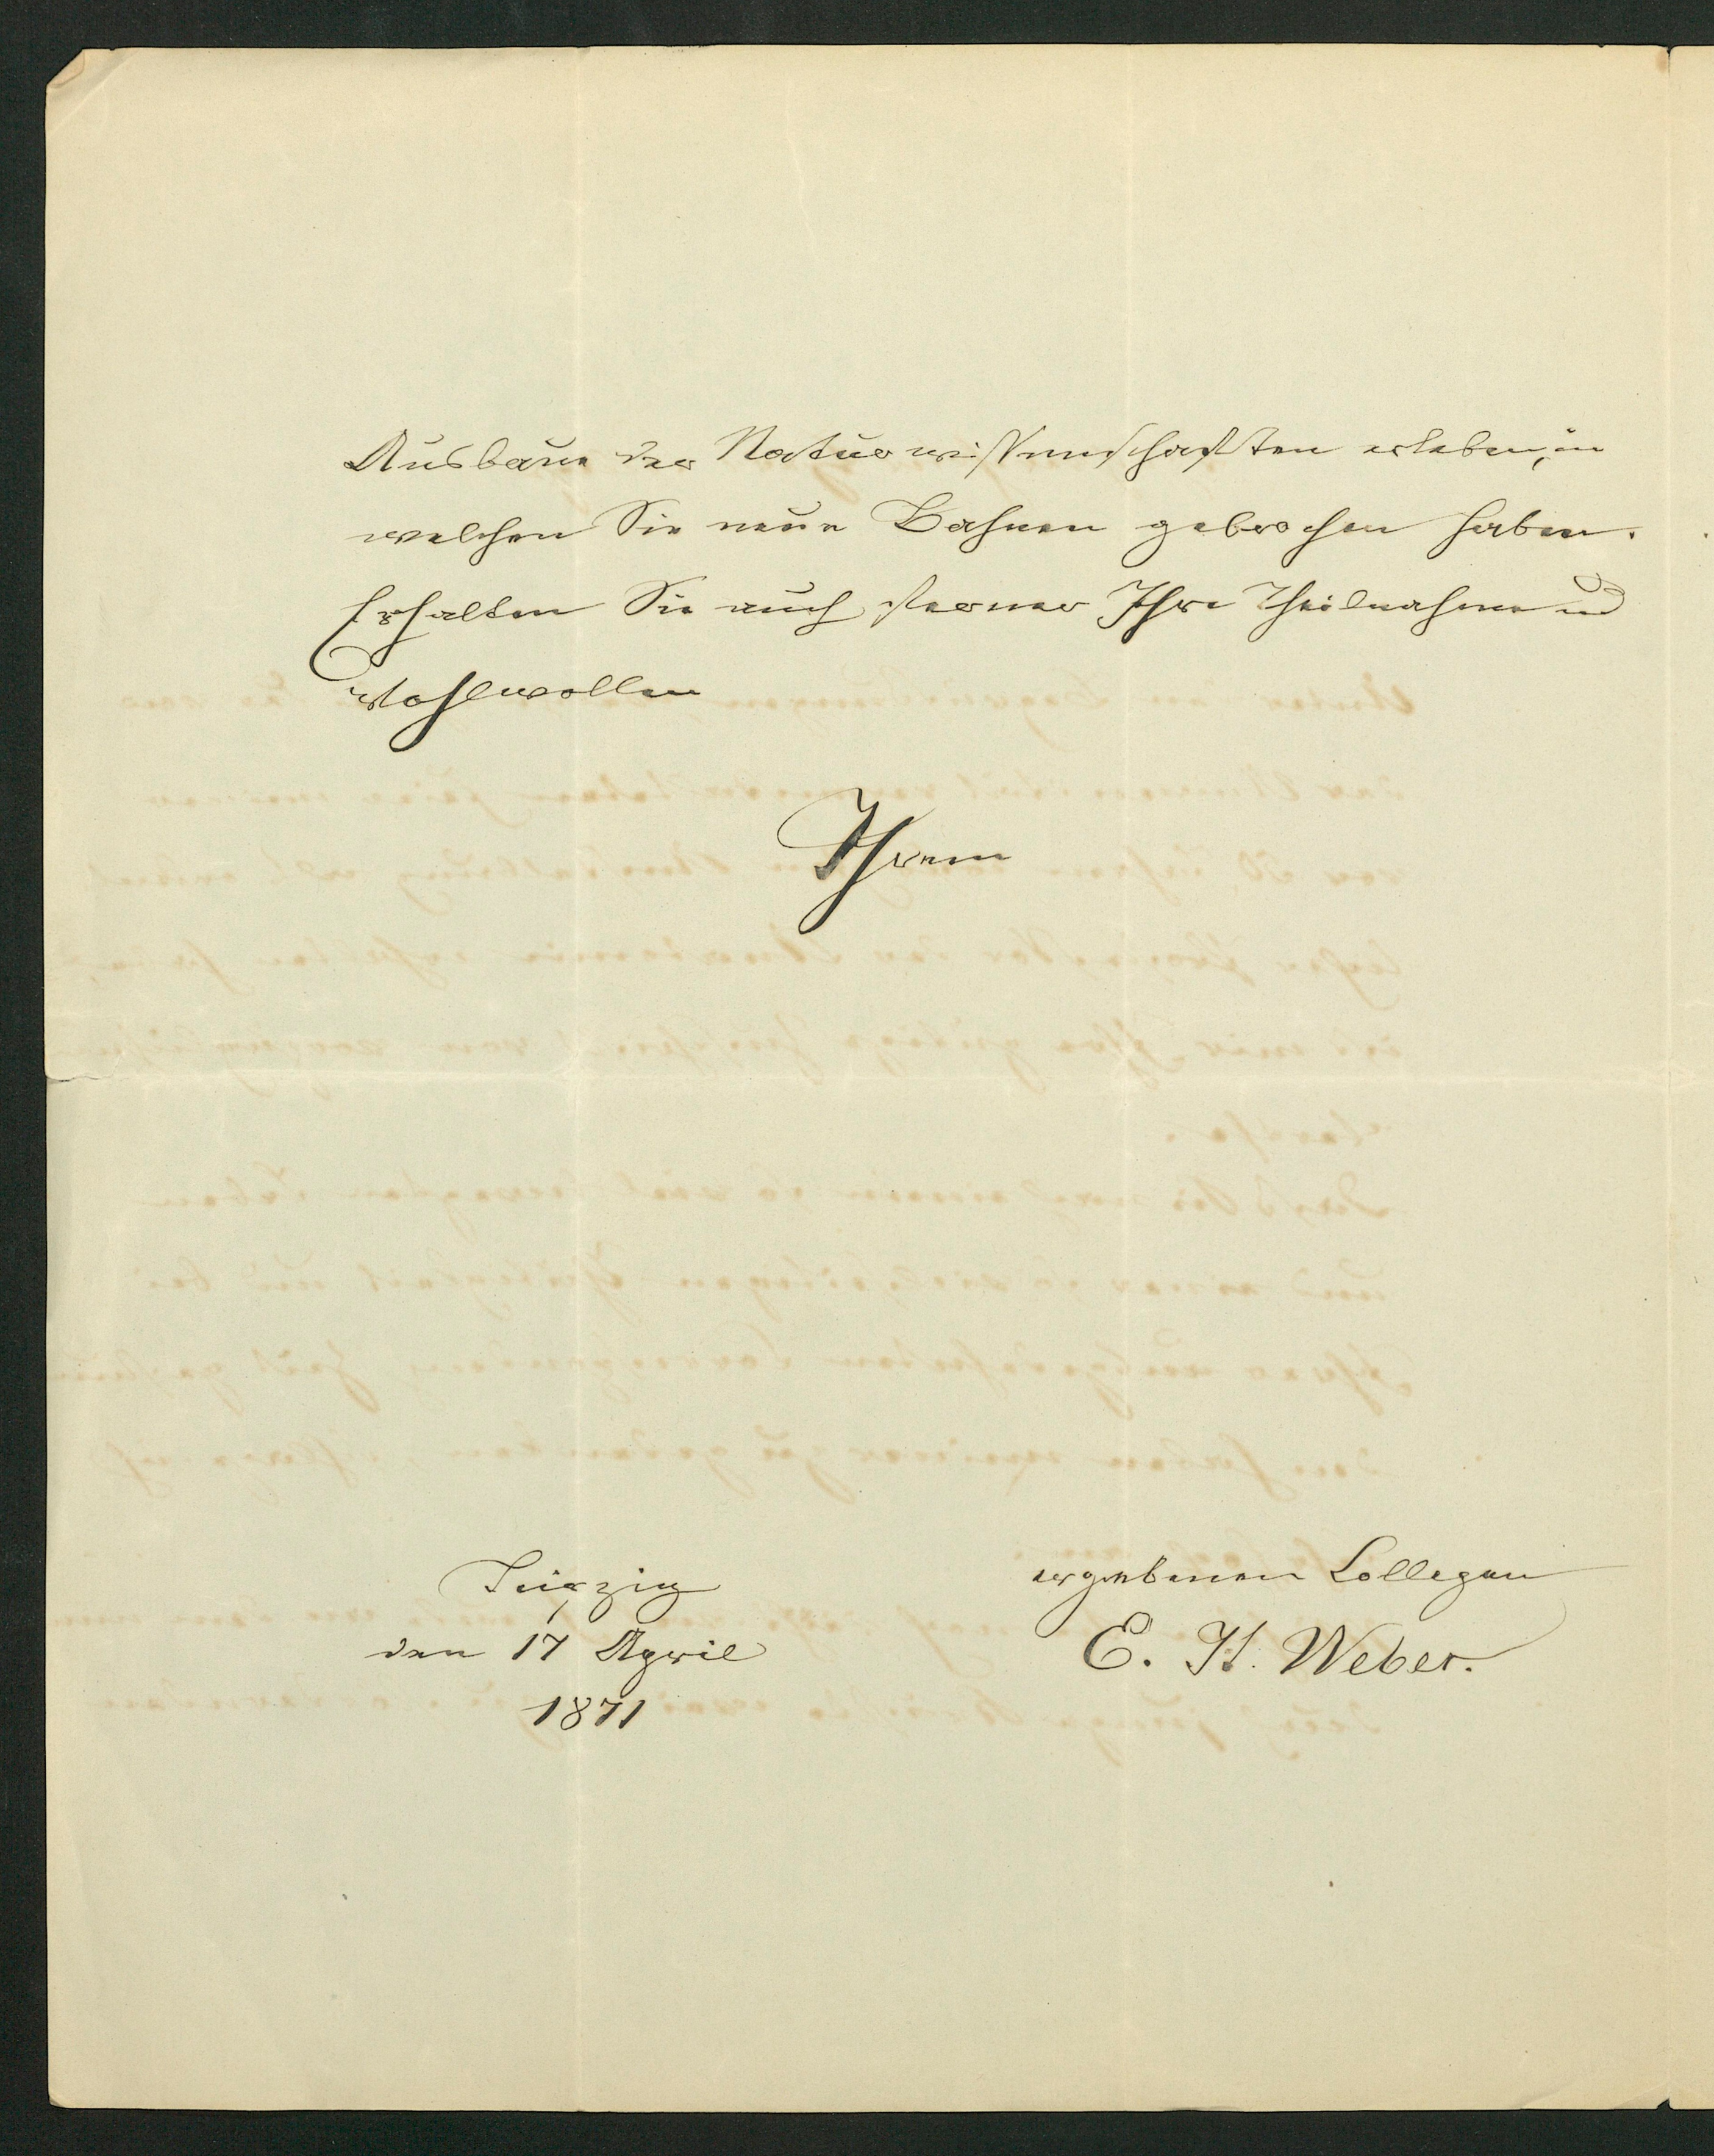 Ausbaue der Naturwissenschaften erleben, in
welchen Sie neue Bahnen gebrochen haben.
Erhalten Sie auch ferner Ihre Theilnahme und
Wohlwollen
Ihrem
ergebenen Collegen
E. H. Weber.
Leipzig
den 17 April
1871